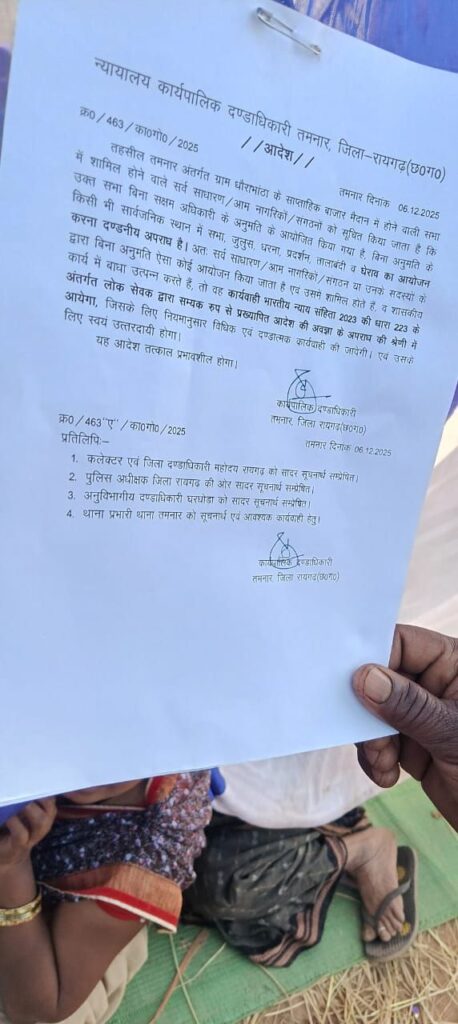 न्यायालय कार्यपालिक दण्डाधिकारी तमनार, जिला–रायगढ़(छ0ग0)
क्र0/463/का0गो0/2025
तमनार दिनांक 06.12.2025
//आदेश//
तहसील तमनार अंतर्गत ग्राम धौराभांठा के साप्ताहिक बाजार मैदान में होने वाली सभा
में शामिल होने वाले सर्व साधारण/आम नागरिकों/संगठनों को सूचित किया जाता है कि
उक्त सभा बिना सक्षम अधिकारी के अनुमति के आयोजित किया गया है, बिना अनुमति के
किसी भी सार्वजनिक स्थान में सभा, जुलुस, धरना, प्रदर्शन, तालाबंदी व घेराव का आयोजन
करना दण्डनीय अपराध है। अतः सर्व साधारण/आम नागरिकों/संगठन या उनके सदस्यों के
द्वारा बिना अनुमति ऐसा कोई आयोजन किया जाता है एवं उसमें शामिल होते हैं, व शासकीय
कार्य में बाधा उत्पन्न करते हैं, तो वह कार्यवाही भारतीय न्याय संहिता 2023 की धारा 223 के
अंतर्गत लोक सेवक द्वारा सम्यक रुप से प्रख्यापित आदेश की अवज्ञा के अपराध की श्रेणी में
आयेगा, जिसके लिए नियमानुसार विधिक एवं दण्डात्मक कार्यवाही की जावेगी। एवं उसके
लिए स्वयं उत्तरदायी होगा।
यह आदेश तत्काल प्रभावशील होगा।
कार्यपालिक दण्डाधिकारी
तमनार, जिला रायगढ़(छ0ग0)
क्र0/463"ए"/का0गो0/2025
तमनार दिनांक 06.12.2025
प्रतिलिपिः–
1. कलेक्टर एवं जिला दण्डाधिकारी महोदय रायगढ़ को सादर सूचनार्थ सम्प्रेषित।
2. पुलिस अधीक्षक जिला रायगढ़ की ओर सादर सूचनार्थ सम्प्रेषित।
3. अनुविभागीय दण्डाधिकारी घरघोडा को सादर सूचनार्थ सम्प्रेषित।
4. थाना प्रभारी थाना तमनार को सूचनार्थ एवं आवश्यक कार्यवाही हेतु।
कार्यपालिक दण्डाधिकारी
तमनार जिला रायगढ़(छ0ग0)